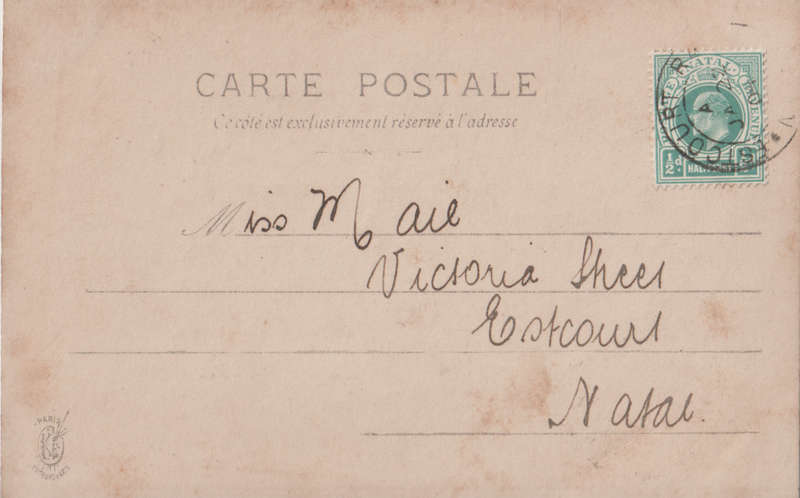 CARTE POSTALE
Ce côté est exclusivement réservé à l'adresse
NATAL
REVENUE
½d.
HALF
ESTCOURT
JA
Miss Mail
Victoria Street
Estcourt
Natal.
PARIS